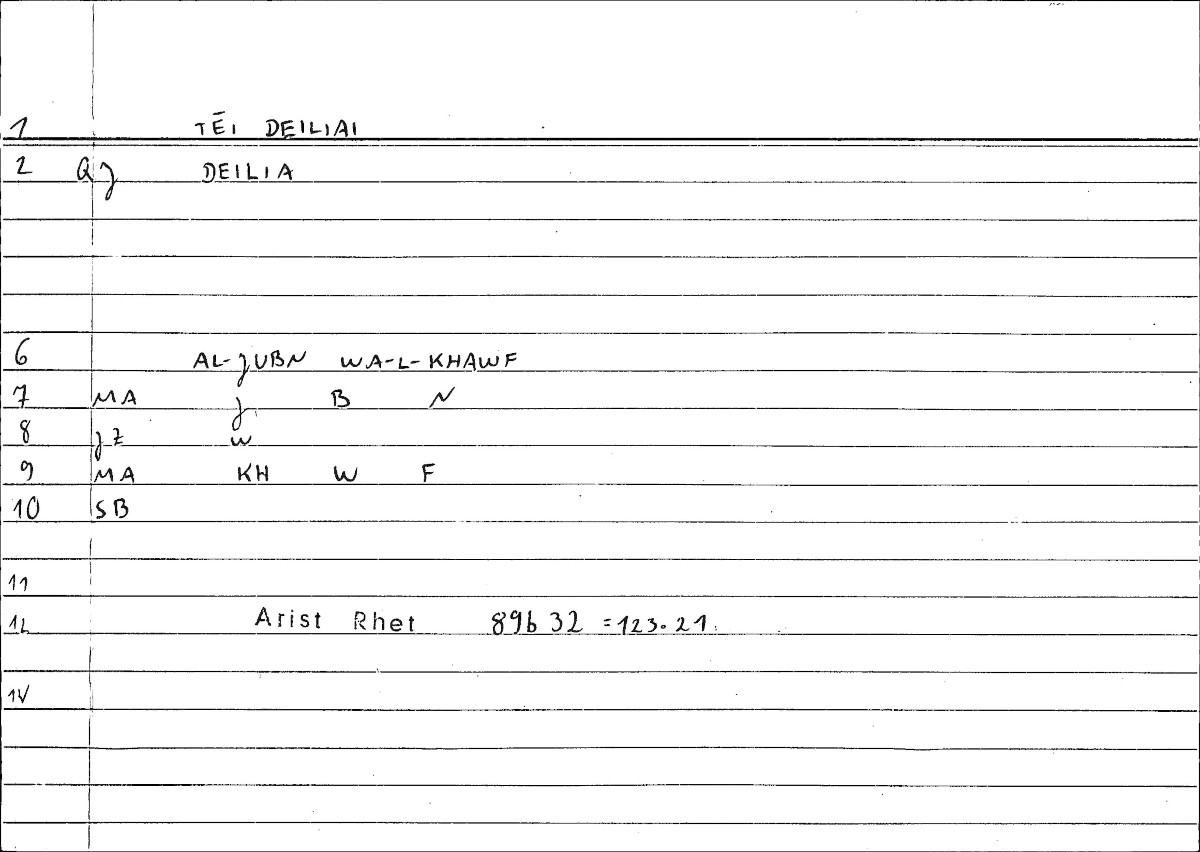 1 TĒI DEILIAI
2 QJ DEILIA
6 AL-JUBN WA-L-KHAWF
7 MA J B N
8 JZ W
9 MA KH W F
10 SB
11
12 Arist Rhet 89b 32 =123.21.
1V